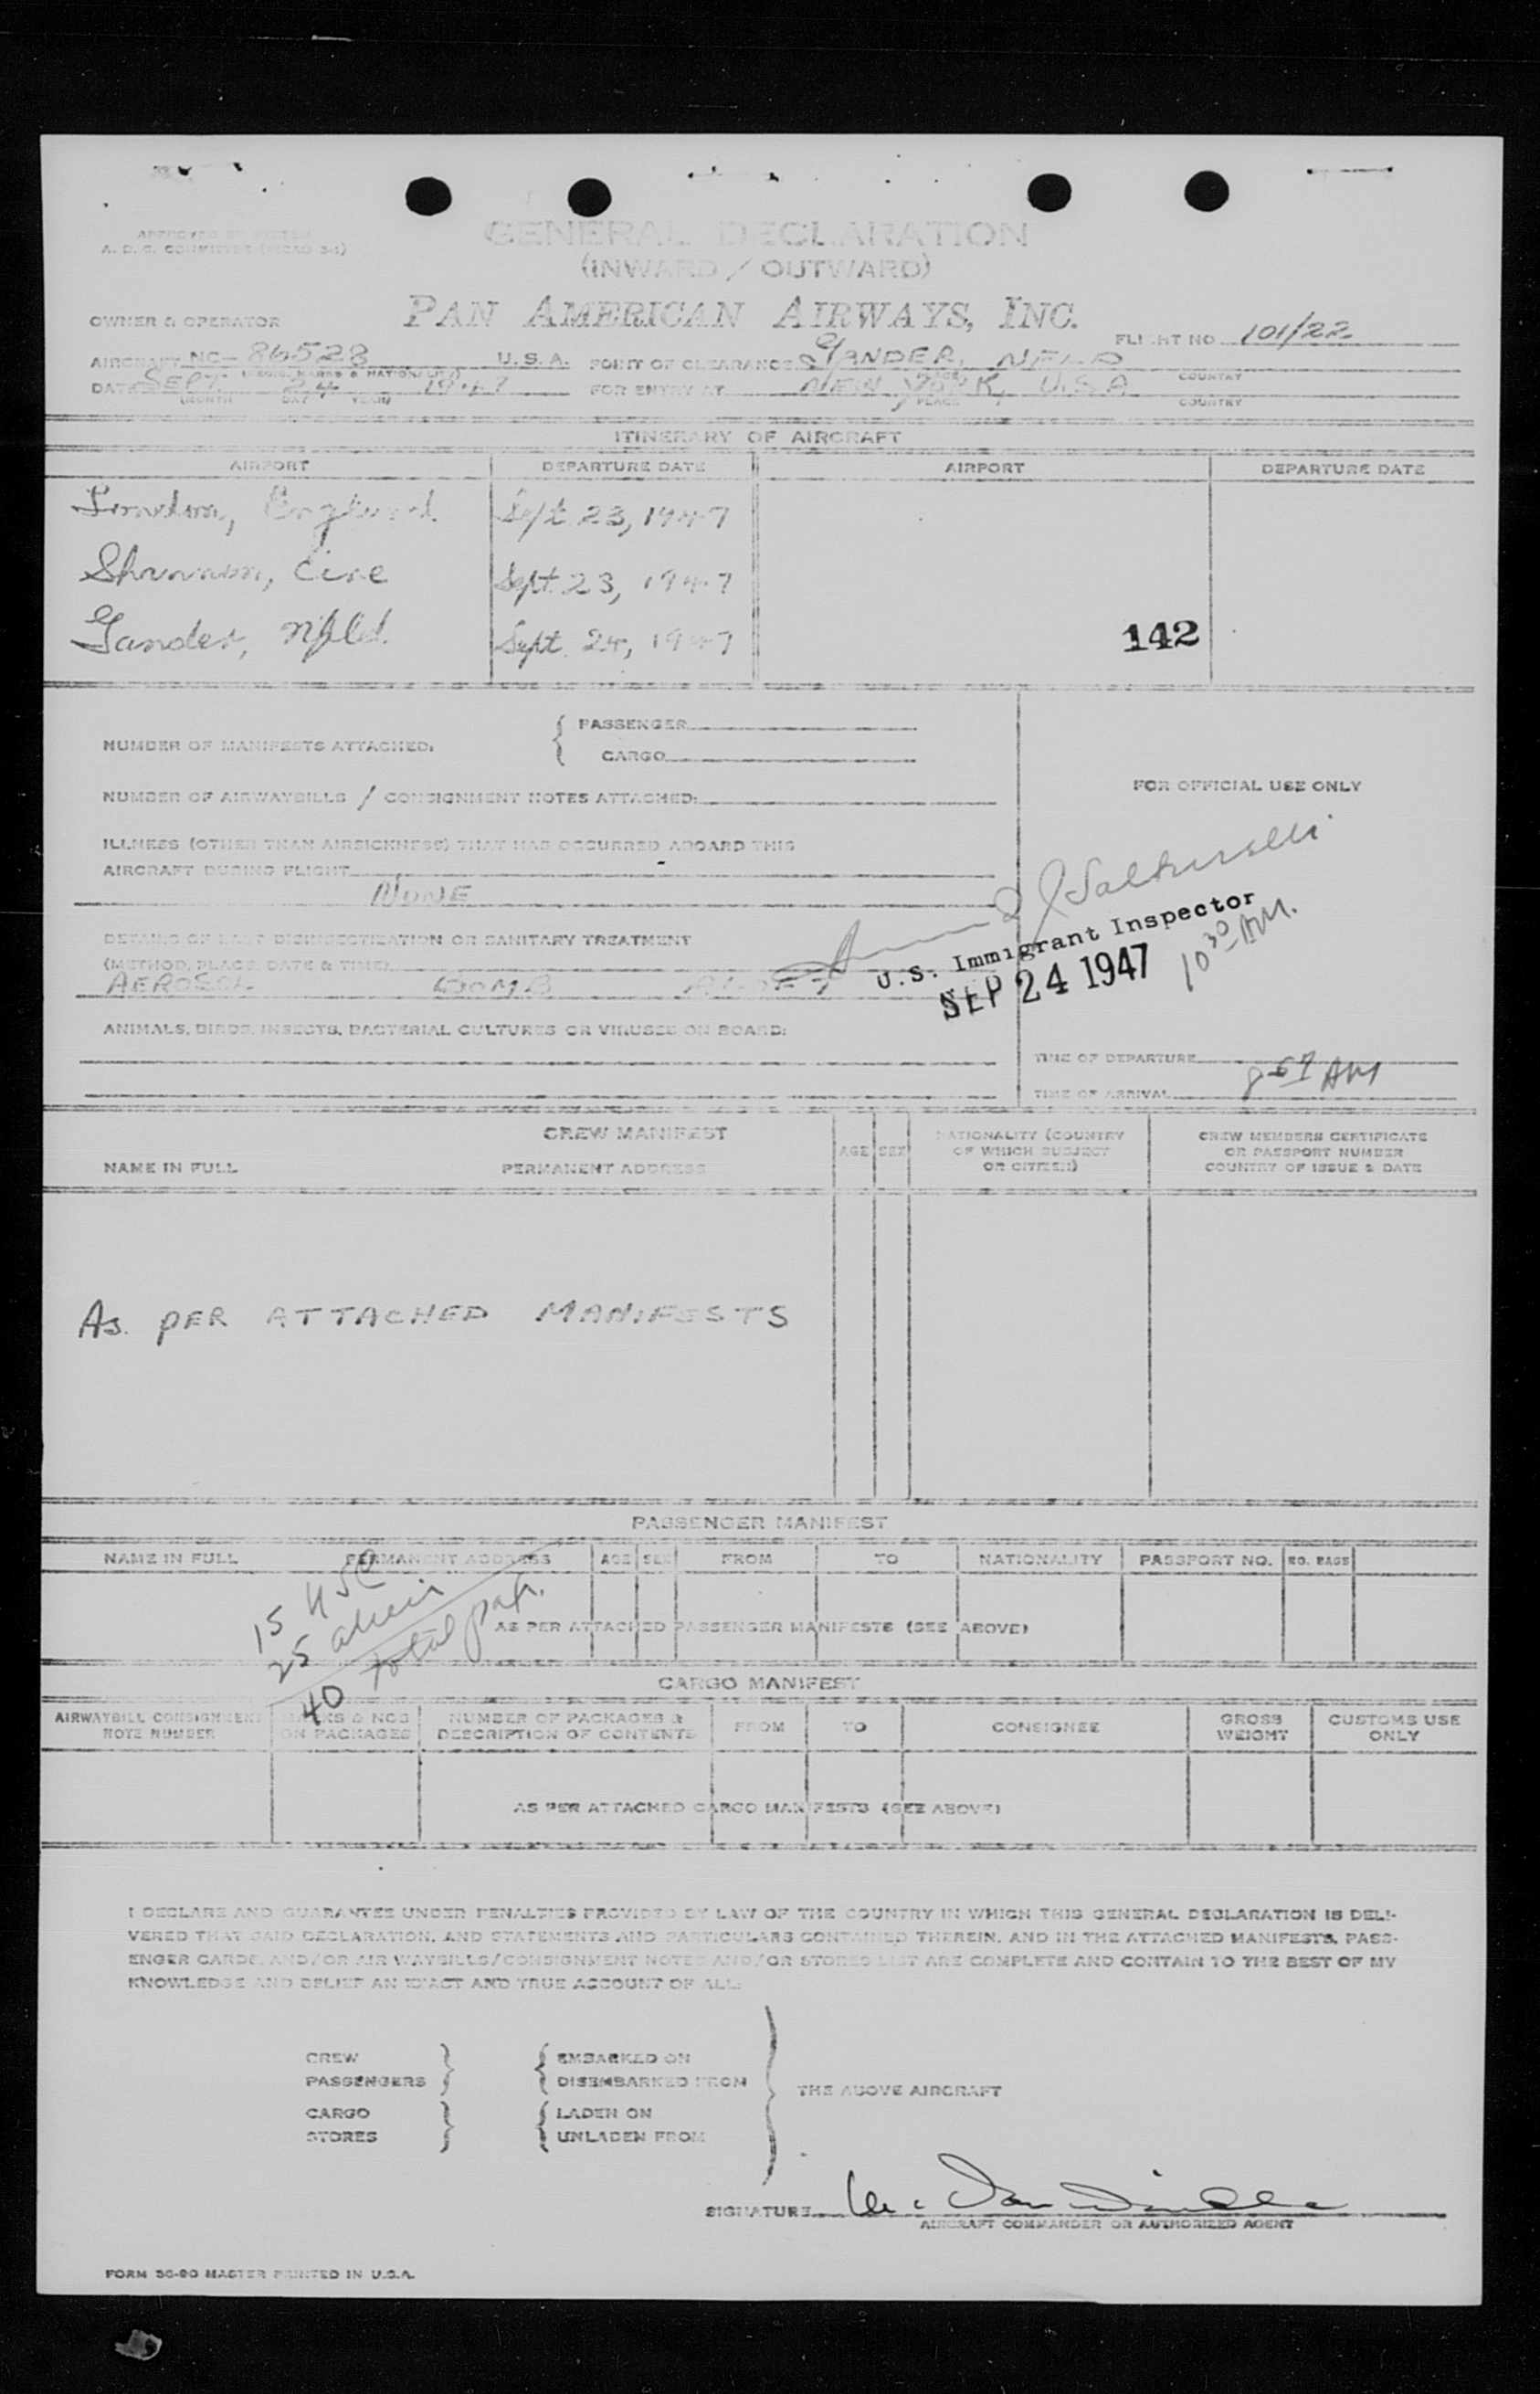 APPROVED BY
A. D. C. COMMITTEE
GENERAL DECLARATION
(INWARD / OUTWARD)
OWNER & OPERATOR PAN AMERICAN AIRWAYS, INC.
FLIGHT NO 101/22
AIRCRAFT NC- 86528 U.S.A. POINT OF CLEARANCE GANDER, NFLD
MARKS & NATIONALITY COUNTRY
DATE SEPT. 24 1947 FOR ENTRY AT NEW YORK, U.S.A
(MONTH DAY YEAR) PLACE COUNTRY
ITINERARY OF AIRCRAFT
AIRPORT DEPARTURE DATE AIRPORT DEPARTURE DATE
London, England Sept 23, 1947
Shannon, Eire Sept 23, 1947
Gander, Nfld. Sept. 24, 1947
142
NUMBER OF MANIFESTS ATTACHED: { PASSENGER
CARGO
FOR OFFICIAL USE ONLY
NUMBER OF AIRWAYBILLS / CONSIGNMENT NOTES ATTACHED:
ILLNESS (OTHER THAN AIRSICKNESS) THAT HAS OCCURRED ABOARD THIS
AIRCRAFT DURING FLIGHT
NONE
U.S. Immigrant Inspector
SEP 24 1947
10 30 AM.
DETAILS OF LAST DISINSECTIZATION OR SANITARY TREATMENT
(METHOD, PLACE, DATE & TIME)
AEROSOL BOMB ALOFT
ANIMALS, BIRDS, INSECTS, BACTERIAL CULTURES OR VIRUSES ON BOARD:
TIME OF DEPARTURE
8 57 AM
TIME OF ARRIVAL
CREW MANIFEST
NAME IN FULL PERMANENT ADDRESS AGE SEX NATIONALITY (COUNTRY OF WHICH SUBJECT OR CITIZEN) CREW MEMBERS CERTIFICATE OR PASSPORT NUMBER COUNTRY OF ISSUE & DATE
As. PER ATTACHED MANIFESTS
PASSENGER MANIFEST
NAME IN FULL PERMANENT ADDRESS AGE SEX FROM TO NATIONALITY PASSPORT NO. NO. BAGS
15 USC
25 alien
40 total pax.
AS PER ATTACHED PASSENGER MANIFESTS (SEE ABOVE)
CARGO MANIFEST
AIRWAYBILL CONSIGNMENT NOTE NUMBER MARKS & NOS ON PACKAGES NUMBER OF PACKAGES & DESCRIPTION OF CONTENTS FROM TO CONSIGNEE GROSS WEIGHT CUSTOMS USE ONLY
AS PER ATTACHED CARGO MANIFESTS (SEE ABOVE)
I DECLARE AND GUARANTEE UNDER PENALTIES PROVIDED BY LAW OF THE COUNTRY IN WHICH THIS GENERAL DECLARATION IS DELI-
VERED THAT SAID DECLARATION, AND STATEMENTS AND PARTICULARS CONTAINED THEREIN, AND IN THE ATTACHED MANIFESTS, PASS-
ENGER CARDS, AND/OR AIR WAYBILLS/CONSIGNMENT NOTES AND/OR STORES LIST ARE COMPLETE AND CONTAIN TO THE BEST OF MY
KNOWLEDGE AND BELIEF AN EXACT AND TRUE ACCOUNT OF ALL:
CREW EMBARKED ON
PASSENGERS DISEMBARKED FROM
THE ABOVE AIRCRAFT
CARGO LADEN ON
STORES UNLADEN FROM
SIGNATURE
AIRCRAFT COMMANDER OR AUTHORIZED AGENT
FORM 36-90 MASTER PRINTED IN U.S.A.